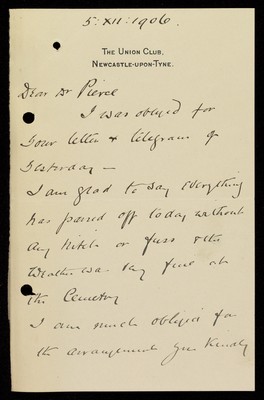 5:XII:1906.
THE UNION CLUB,
NEWCASTLE-UPON-TYNE.
Dear Dr Pierce
I was obliged for
your letter & telegram of
yesterday —
I am glad to say everything
has passed off today without
any hitch or fuss & the
weather was very fine at
the Cemetery
I am much obliged for
the arrangements you kindly